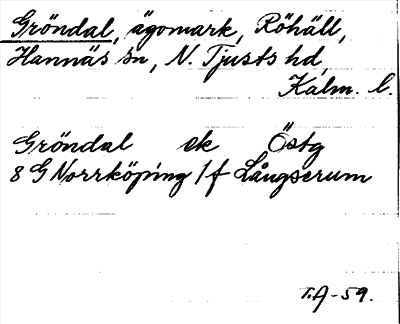 Gröndal, ägomark, Röhäll,
Hannäs sn, N. Tjusts hd,
Kalm. l.
Gröndal ek Östg
8 G Norrköping 1f Långserum
T.A-59.